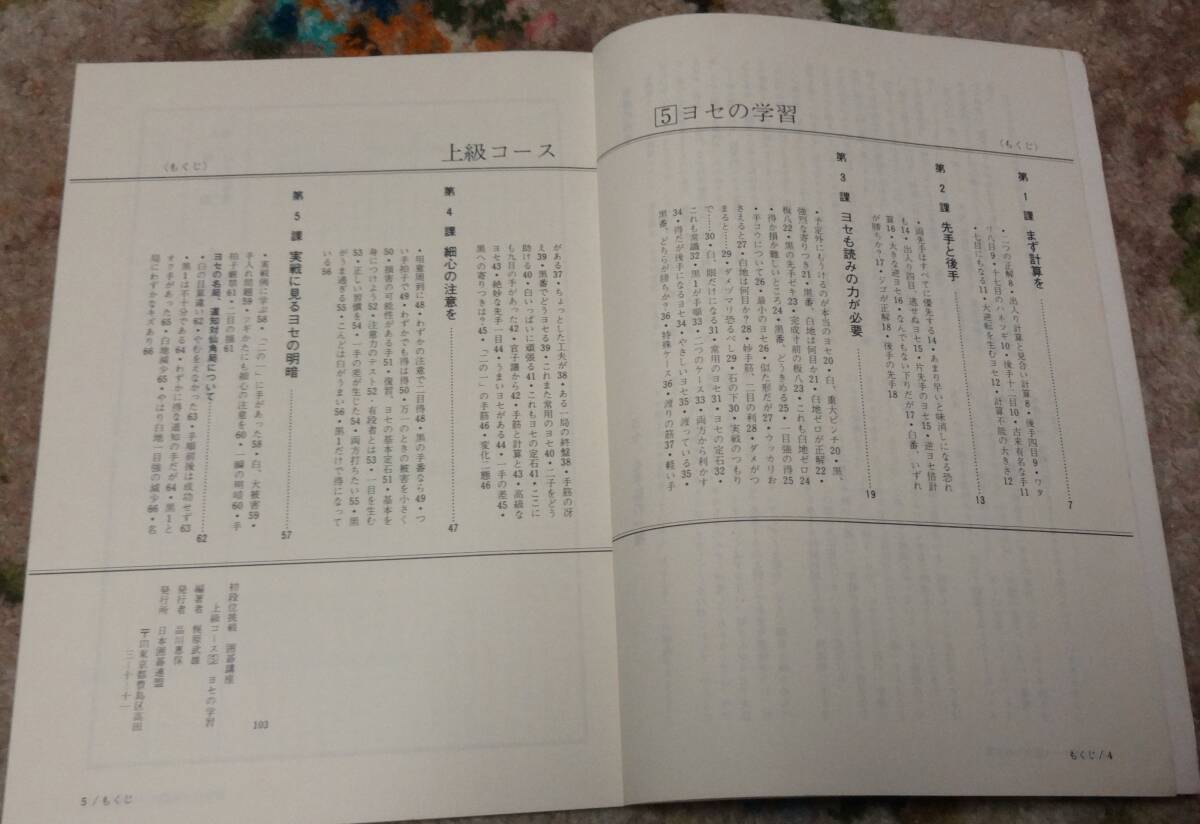 5 ヨセの学習
〈もくじ〉
第1課 まず計算を……………7
・二つの正解8・出入り計算と見合い計算8・後手四目9・ワタ
り八目9・十七目のハネツギ10・後手十二目10・古来有名な手11
・七目にもなる11・大逆転を生むヨセ12・計算不能の大きさ12
第2課 先手と後手……………13
・両先手はすべてに優先する14・あまり早いと味消しになる恐れ
も14・出入り四目、逃せぬヨセ15・片先手のヨセ15・逆ヨセ倍計
算16・大きな逆ヨセ16・なんでもない下りだが17・白番、いずれ
が勝ちか？17・シブが正解18・後手の先手18
第3課 ヨセも読みの力が必要……………19
・予定外にもうけるのが本当のヨセ20・白、重大ピンチ20・黒、
強烈な寄りつき21・黒番、白地は何目か21・白地ゼロが正解22・
板八22・黒の先手ゼキ23・完成寸前の板八23・これも白地ゼロ24
・得か損か難しいところ24・黒番、どうきめる25・一目強の得25
・手ヨウについて26・最小のヨセ26・似た形だが27・ウッカリお
さえると27・白地は何目か？28・妙手筋、二目の利28・ダメがつ
まると……29・ダメヅマリ恐るべし29・石の下30・実戦のつもり
で……30・白、眼だけになる31・常用のヨセ31・ヨセの定石32・
これも常識32・黒1が手順33・二つのケース33・両方から利かす
34・得だが後手になるヨセ34・やさしいヨセ35・渡っている35・
黒番、どちらが勝ちか？36・特殊ケース36・渡りの筋37・軽い手
もくじ/4
上級コース
〈もくじ〉
がある37・ちょっとした工夫が38・ある一局の終盤38・手筋の冴
え39・黒番でどうヨセる39・これまた常用のヨセ40・二子をどう
助ける40・白いっぱいに頑張る41・これもヨセの定石41・ここに
も九目の手があった42・官子譜から42・手筋と計算と43・高級な
ヨセ43・絶妙な先手一目44・うまいヨセがある44・一手の差45・
黒への寄りつきは？45・「二の一」の手筋46・変化二態46
第4課 細心の注意を……………47
・用意周到に48・わずかの注意で二目得48・黒の手番なら49・つ
い手拍子で49・わずかでも得は得50・万一のときの被害を小さく
50・損害の可能性がある手51・復習、ヨセの基本定石51・基本を
身につけよう52・注意力のテスト52・有段者とは53・一目を生む
53・正しい習慣を54・一手の差が生じた54・両方打ちたい55・黒
がうま過ぎる55・こんどは白がうまい56・黒1だけで得になって
いる56
第5課 実戦に見るヨセの明暗……………57
・実戦例に学ぶ58・「二の一」に手があった58・白、大被害59・
手入れ問題59・ツギかたにも細心の注意を60・一瞬の明暗60・手
拍子観禁61・一二目の損61
ヨセの名局、道知対仙角局について……………62
・白の目算違い62・やむをえなかった63・手順前後は成功せず63
・黒1は不十分である64・わずかに得な道知の手だが64・黒1と
オク手があった65・白地減少65・やはり白地一目強の減少66・名
局にわずかなキズあり66
初段位挑戦 囲碁講座
上級コース⑤ ヨセの学習
編著者 梶原武雄
発行者 品川惠保
発行所 日本囲碁連盟
〒171東京都豊島区高田
三-十-十一
103
5/もくじ